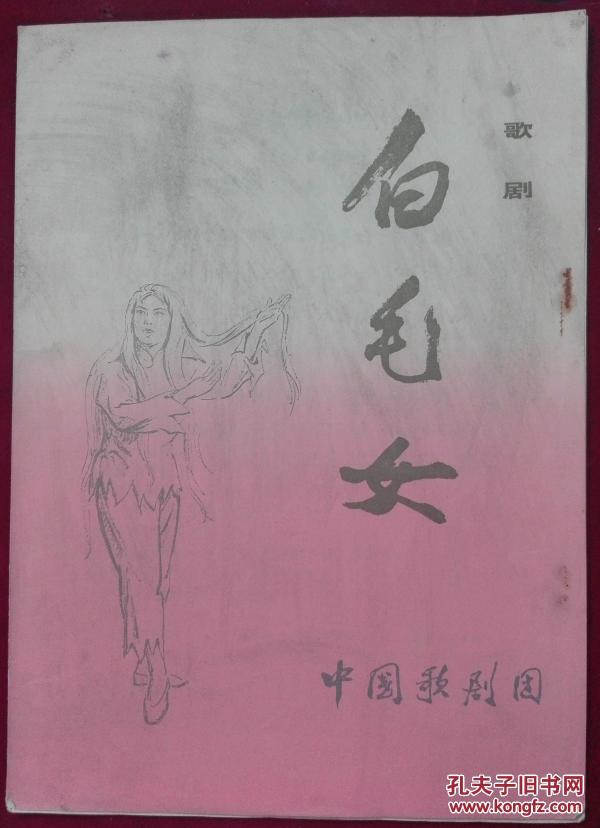 歌剧
白毛女
中国歌剧团
孔夫子旧书网
www.kongfz.com